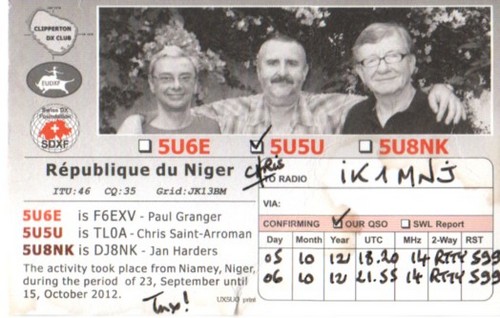 CLIPPERTON
DX CLUB
EUDXF
Swiss DX
Foundation
SDXF
5U6E 5U5U 5U8NK
République du Niger
ITU:46 CQ:35 Grid:JK13BM
5U6E is F6EXV - Paul Granger
5U5U is TL0A - Chris Saint-Arroman
5U8NK is DJ8NK - Jan Harders
The activity took place from Niamey, Niger,
during the period of 23, September until
15, October 2012.
Tnx!
UX5UO print
Chris
TO RADIO IK1MNJ
VIA:
CONFIRMING OUR QSO SWL Report
Day Month Year UTC MHz 2-Way RST
05 10 12 18.20 14 RTTY 599
06 10 12 21.55 14 RTTY 599